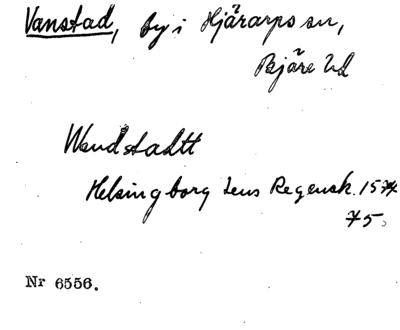 Vanstad, by i Hjärarps sn,
Bjäre hd
Wandstadtt
Helsingborg Lens Regensk. 1574
75
Nr 6556.